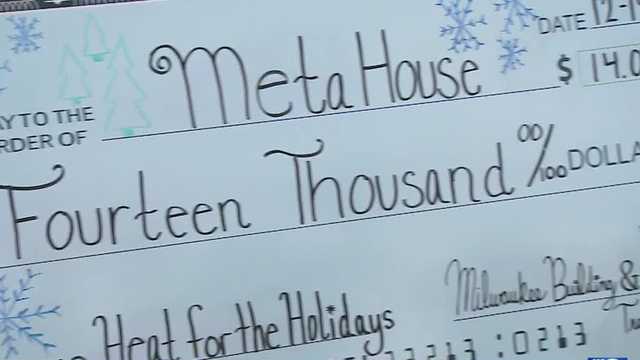 DATE 12-1
AY TO THE
RDER OF
MetaHouse
$ 14.0
Fourteen Thousand 00/100 DOLLA
Heat for the Holidays
Milwaukee Building &
:0213